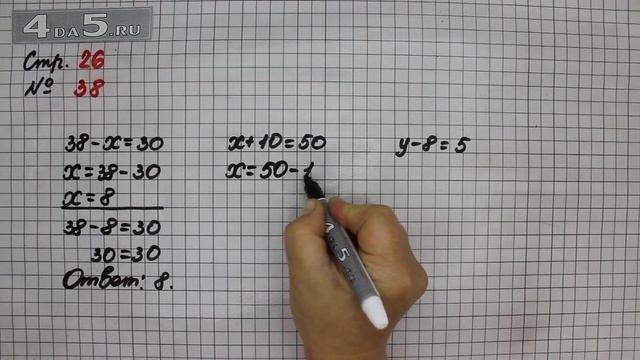 4DA5.RU
Стр. 26
№ 38
38-x=30
x=38-30
x=8
38-8=30
30=30
Ответ: 8.
x+10=50
x=50-1
y-8=5
4 5